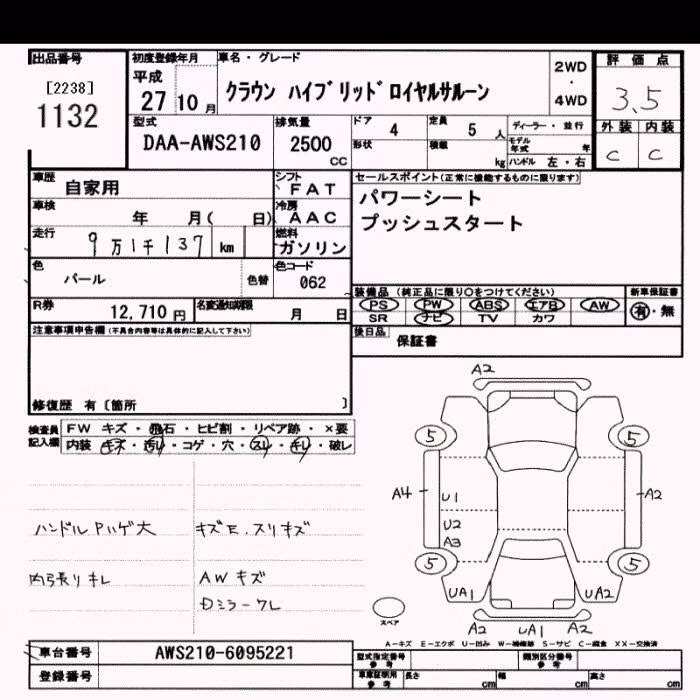 出品番号
[2238]
1132
初度登録年月
平成
27 10 月
車名・グレード
クラウン ハイブリッド ロイヤルサルーン
2WD
・
4WD
評価点
3.5
外装 内装
C C
型式
DAA-AWS210
排気量
2500
CC
ドア 4
定員 5 人
ディーラー・並行
形状
積載 kg
モデル年式 年
ハンドル 左・右
車歴 自家用
シフト FAT
車検 年 月( 日)
冷房 AAC
走行 9万1千137 km
燃料 ガソリン
色 パール
色替
色コード 062
R券 12,710 円
名変通知期限 月 日
セールスポイント(正常に機能するものに限ります)
パワーシート
プッシュスタート
装備品(純正品に限り○をつけてください)
PS PW ABS エアB AW
SR ナビ TV カワ
新車保証書
有・無
後日品 保証書
注意事項申告欄(不具合内容等は具体的に記入して下さい)
修復歴 有〔箇所 〕
検査員記入欄
FW キズ・飛石・ヒビ割・リペア跡・×要
内装 キズ・汚レ・コゲ・穴・スレ・キレ・破レ
ハンドルPハゲ大
キズE.スリキズ
内張リキレ
AWキズ
A2
5
5
A4
U1
A2
U2
A3
5
5
UA1
UA2
A2
UA1
A2
スペア
A-キズ E-エクボ U-凹み W-補修跡 S-サビ C-腐食 XX-交換済
車台番号 AWS210-6095221
登録番号
型式指定番号 参考
類別区分番号 参考
車庫証明用 参考
長さ cm
幅 cm
高さ cm